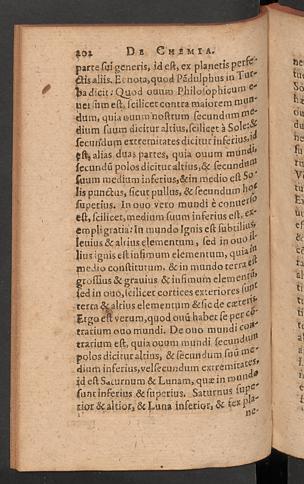 202 DE CHEMIA.
parte sui generis, id est, ex planetis perfe-
ctis aliis. Et nota, quod Pādulphus in Tur-
ba dicit: Quod ovum Philosophicum e-
versum est, scilicet contra maiorem mun-
dum, quia ovum nostrum secundum me-
dium suum dicitur altius, scilicet à Sole: &
secundum extremitates dicitur inferius, id
est, alias duas partes, quia ovum mundi,
secundū polos dicitur altius, & secundum
suum medium inferius, & in medio est So-
lis punctus, sicut pullus, & secundum hoc
superius. In ouo vero mundi è converso
est, scilicet, medium suum inferius est, ex-
empli gratia: In mundo Ignis est subtilius,
levius & altius elementum, sed in ouo il-
lius ignis est infimum elementum, quia in
medio constitutum, & in mundo terra est
grossius & gravius & infimum elementū,
sed in ouo, scilicet cortices exteriores sunt
terra & altius elementum & sic de cæteris.
Ergo est verum, quod ovū habet se per cō-
trarium ouo mundi. De ouo mundi con-
trarium est, quia ovum mundi secundum
polos dicitur altius, & secundum suū me-
dium inferius, vel secundum extremitates,
id est Saturnum & Lunam, quæ in mundo
sunt inferius & superius. Saturnus supe-
rior & altior, & Luna inferior, & sex pla-
ne-